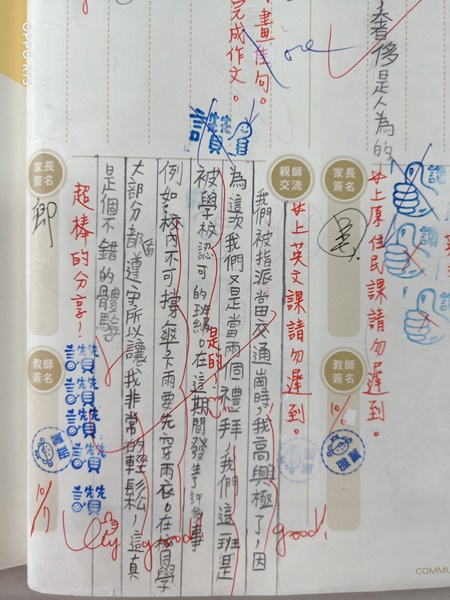 奢侈是人為的
畫佳句。
完成作文。
讚
家長簽名
上原住民課請勿遲到。
教師簽名
10/6
親師交流
上英文課請勿遲到。
我們被指派當交通崗時，我高興極了，因
為這次我們又是當兩個禮拜，我們這一班是
被學校認可的班級。在這期間發生了許多事
是的！
例如：校內不可撐傘下雨要先穿雨衣。在校同學
大部分都有遵守所以讓我非常的輕鬆，這真
是個不錯的體驗
good
Very good
超棒的分享！
讚讚
讚讚
家長簽名
教師簽名
10/7
OPPO
COMMU